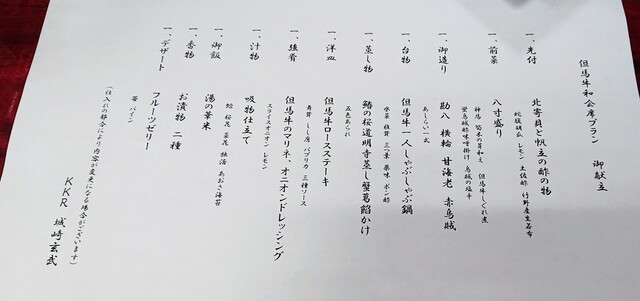 但馬牛和会席プラン　御献立
一、先付　北寄貝と帆立の酢の物
蛇腹胡瓜　レモン　土佐酢　竹野産生若布
一、前菜　八寸盛り
但馬牛しぐれ煮
一、御造り　勘八　横輪　甘海老　赤烏賊
あしらい一式
一、台物　但馬牛一人しゃぶしゃぶ鍋
水菜　桂茸　三つ葉　薬味　ポン酢
一、蒸し物　鰆の桜道明寺蒸し蟹葛餡かけ
五色あられ
一、洋皿　但馬牛ロースステーキ
舞茸　しし唐　パプリカ　三種ソース
一、強肴　但馬牛のマリネ、オニオンドレッシング
スライスオニオン　レモン
一、汁物　吸物仕立て
蛤　桜花　菜花　独活　あおさ海苔
一、御飯　湯の華米
一、香物　お漬物　二種
一、デザート　フルーツゼリー
苺　パイン
（仕入れの都合により内容が変更になる場合がございます）
KKR　城崎玄武